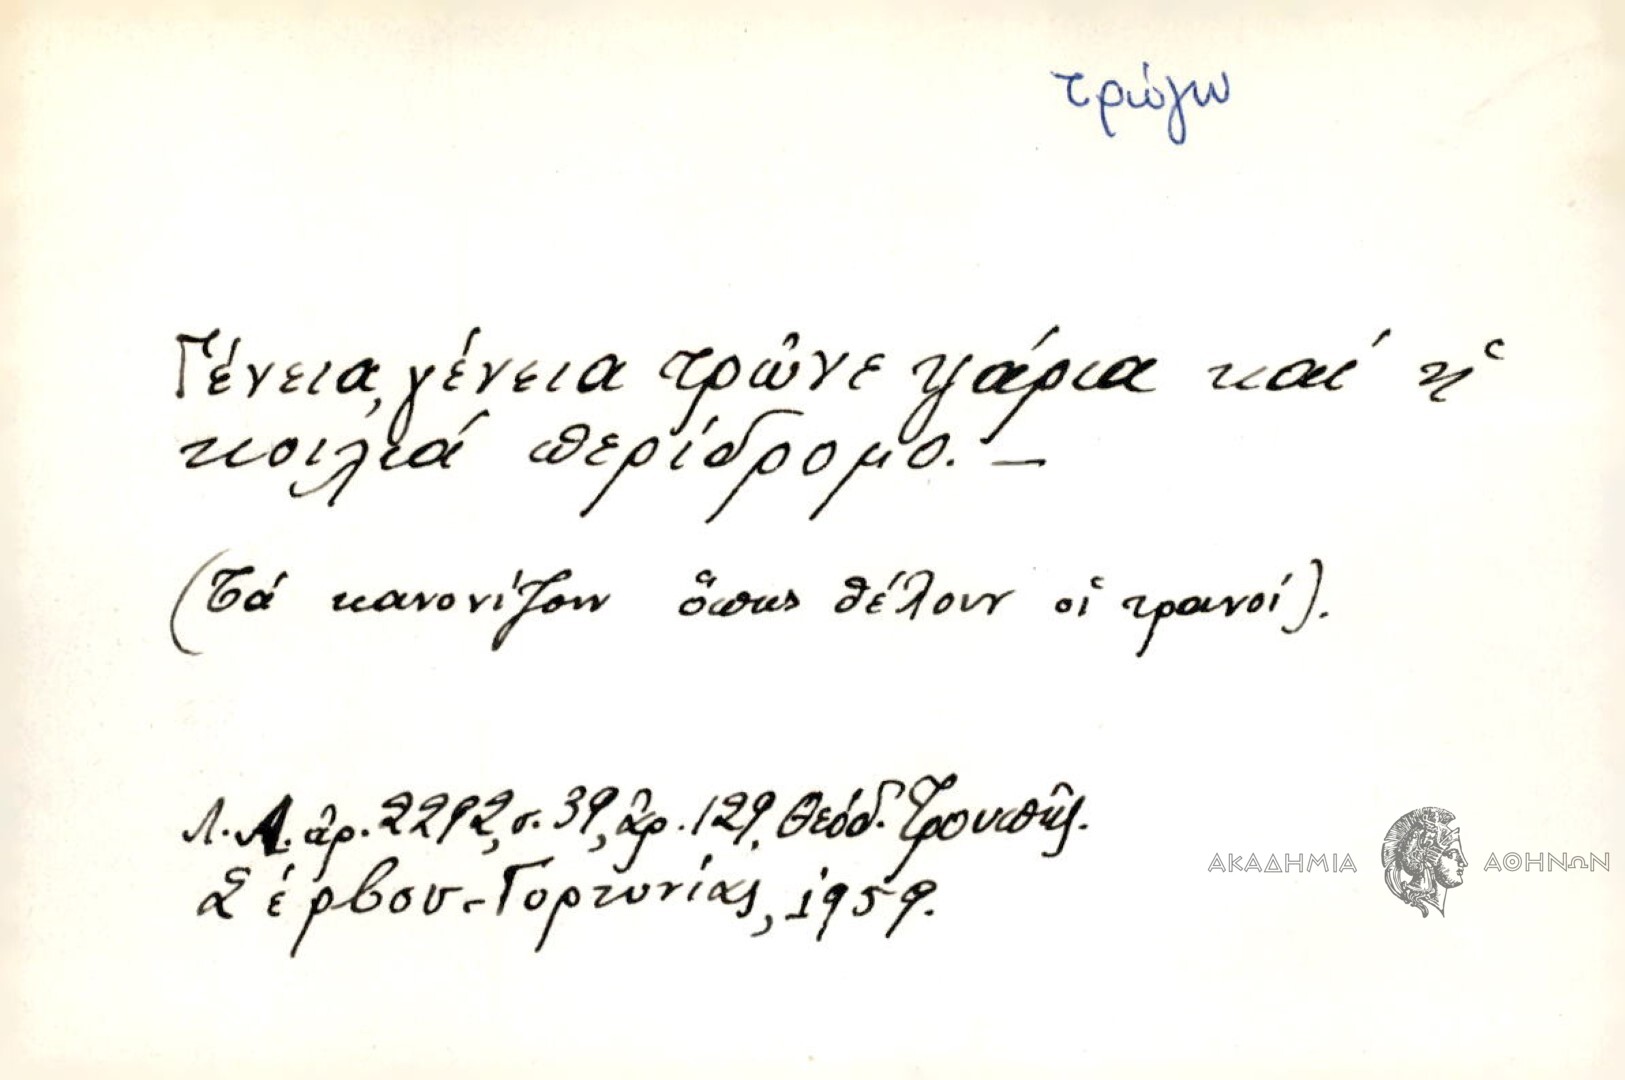 τρώγω
Γένεια, γένεια τρῶνε ψάρια καί ἡ
κοιλιά περίδρομο. —
(Τά κανονίζουν ὅπως θέλουν οἱ τρανοί).
Λ.Α. ἀρ. 2292, σ. 39, ἀρ. 129, Θεόδ. Τρουπῆς.
Σέρβου-Γορτυνίας, 1959.
ΑΚΑΔΗΜΙΑ ΑΘΗΝΩΝ